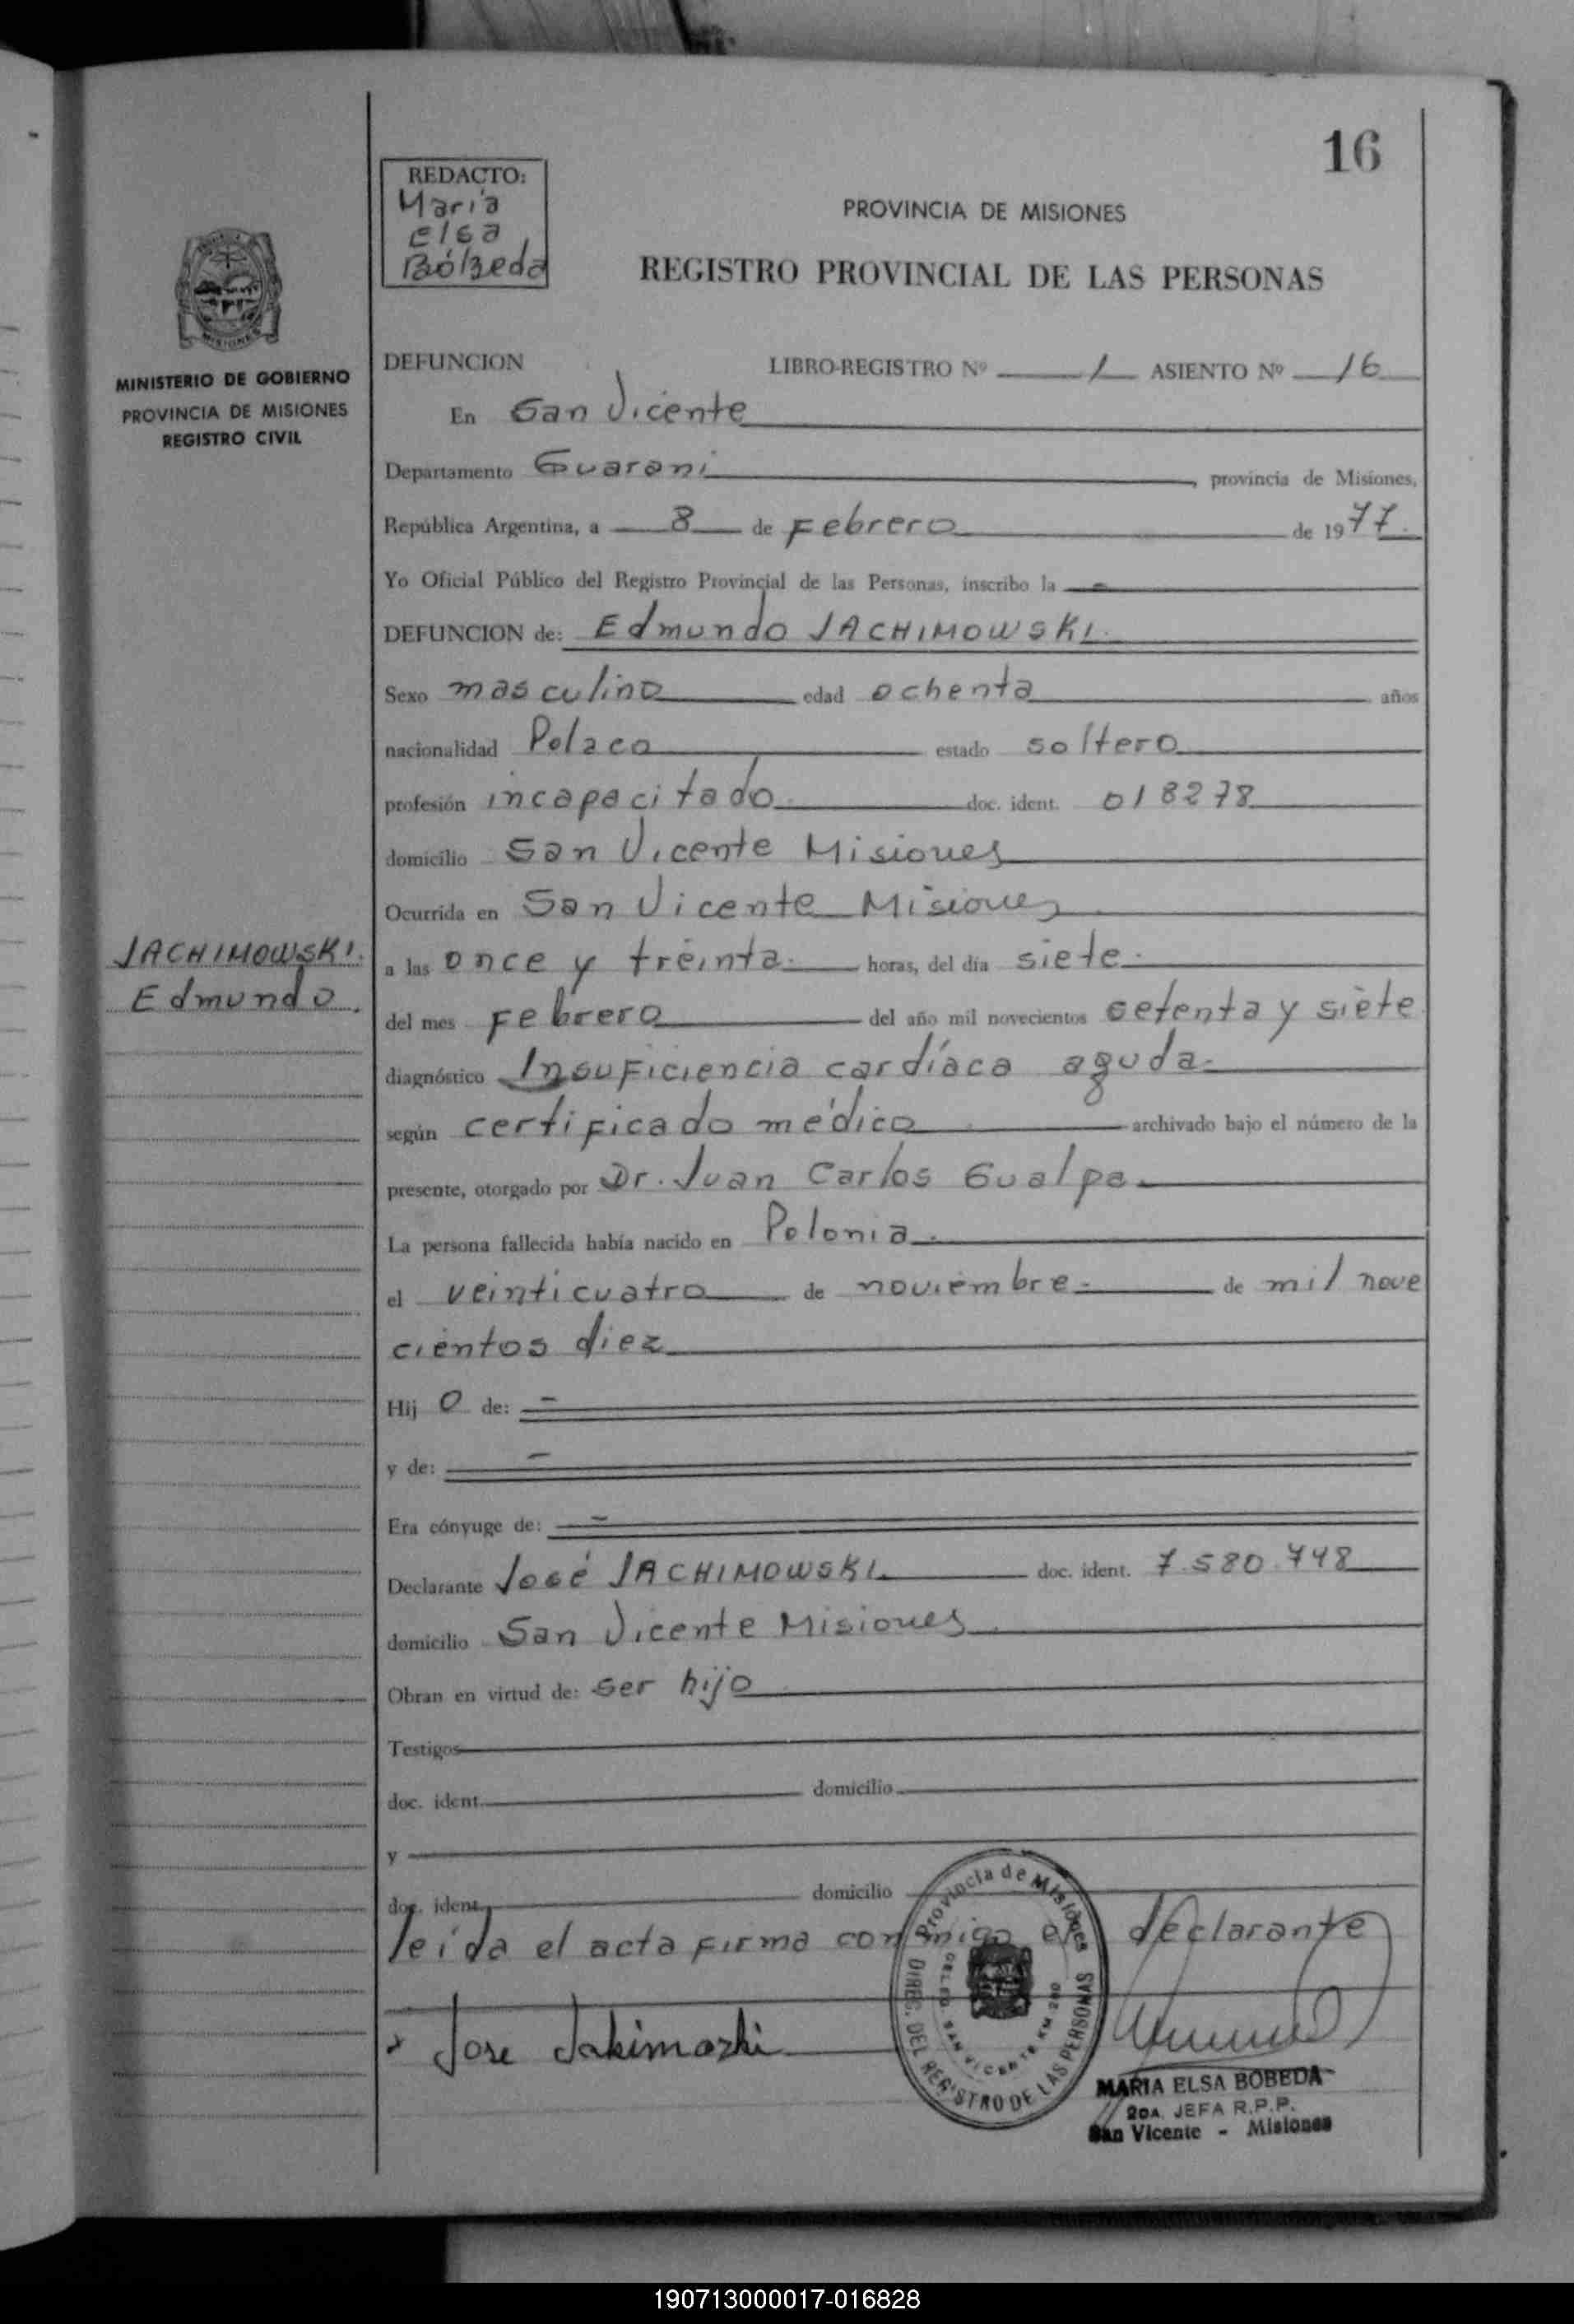 16
REDACTO:
María
elsa
Bóbeda
PROVINCIA DE MISIONES
REGISTRO PROVINCIAL DE LAS PERSONAS
MISIONES
MINISTERIO DE GOBIERNO
PROVINCIA DE MISIONES
REGISTRO CIVIL
DEFUNCION LIBRO-REGISTRO Nº 1 ASIENTO Nº 16
En San Vicente
Departamento Guarani, provincia de Misiones,
República Argentina, a 8 de Febrero de 1977.
Yo Oficial Público del Registro Provincial de las Personas, inscribo la -
DEFUNCION de: Edmundo JACHIMOWSKI.
Sexo masculino edad ochenta años
nacionalidad Polaco estado soltero
profesión incapacitado doc. ident. 018278
domicilio San Vicente Misiones
Ocurrida en San Vicente Misiones
JACHIMOWSKI.
Edmundo.
a las once y treinta horas, del día siete
del mes Febrero del año mil novecientos setenta y siete
diagnóstico Insuficiencia cardíaca aguda
según certificado médico archivado bajo el número de la
presente, otorgado por Dr. Juan Carlos Gualpa
La persona fallecida había nacido en Polonia
el veinticuatro de noviembre de mil nove
cientos diez
Hij o de: -
y de: -
Era cónyuge de: -
Declarante José JACHIMOWSKI doc. ident. 7.580.748
domicilio San Vicente Misiones
Obran en virtud de: ser hijo
Testigos
doc. ident. domicilio
y
doc. ident. domicilio
leída el acta firma conmigo el declarante
x Jose Jakimozki
Provincia de Misiones
DIREC. DEL REGISTRO DE LAS PERSONAS
DELEG. SAN VICENTE KM 280
MARIA ELSA BOBEDA
2DA. JEFA R.P.P.
San Vicente - Misiones
190713000017-016828